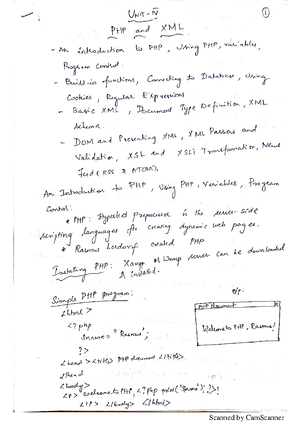 UNIT-IV
①
PHP and XML
- An introduction to PHP, Using PHP, variables,
Program control.
- Built-in functions, Connecting to Database, Using
Cookies, Regular Expressions
- Basic XML, Document Type Definition, XML
Schema.
- DOM and Presenting XML, XML Parsers and
Validation, XSL and XSLT Transformation, News
Feed (RSS & ATOM).
An Introduction to PHP, Using PHP, Variables, Program
Control:
* PHP: Hypertext preprocessor is the server-side
scripting languages for creating dynamic web pages.
* Rasmus Lerdorf created PHP
Installing PHP: Xampp or Wamp server can be downloaded
& installed.
Simple PHP program:
o/p:
<html>
<?php
PHP document
$name = "Rasmus";
Welcome to PHP, Rasmus!
?>
<head><title> PHP document </title>
</head
<body>
<p> welcome to PHP, <?php print("$name"); ?>!
</p> </body> </html>
Scanned by CamScanner